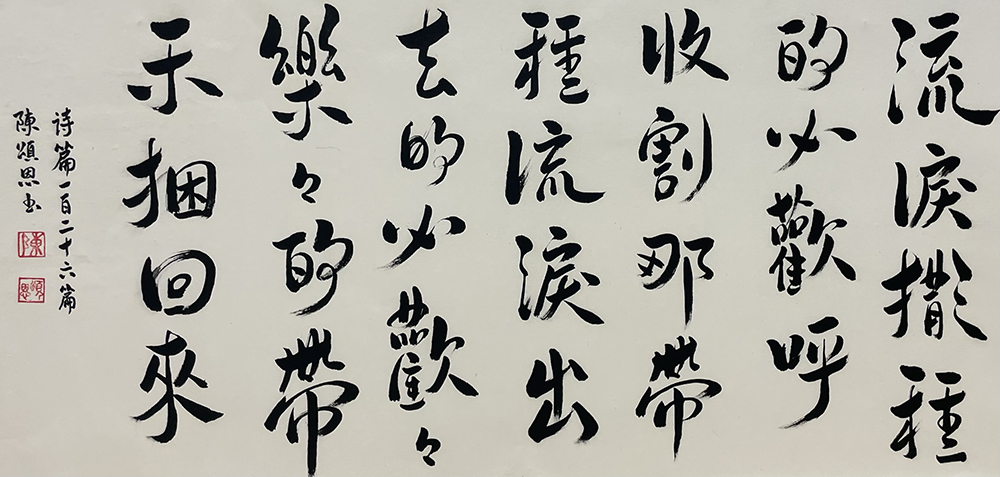 流淚撒種
的必歡呼
收割那帶
種流淚出
去的必歡々
樂々的帶
禾捆回來
诗篇一百二十六篇
陳頌恩书
陳
頌恩